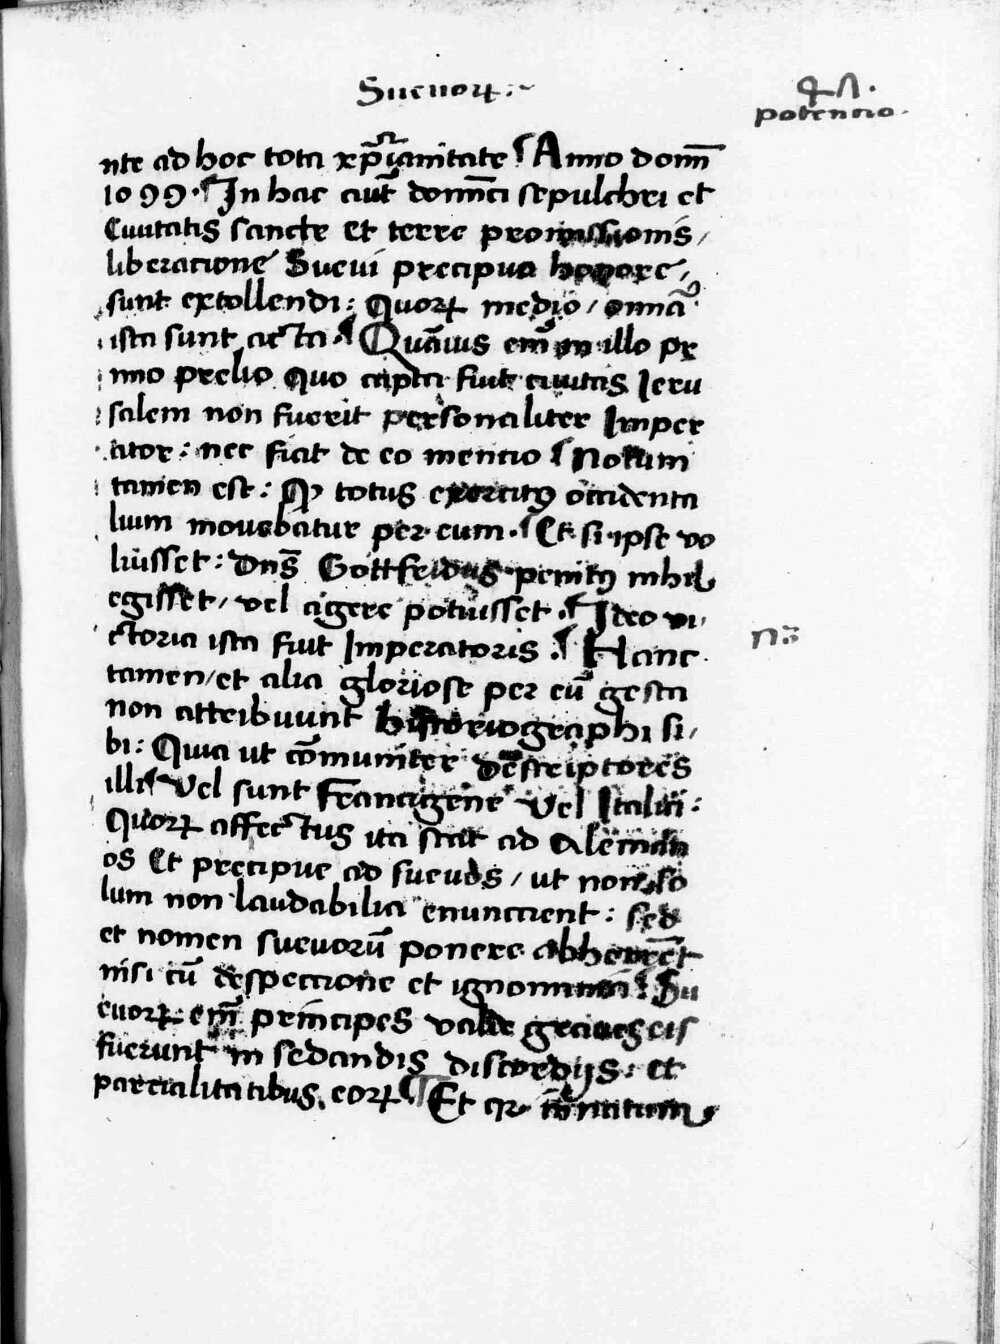 Sueuoꝝ
potencio
nte ad hoc tota xp̅ianitate ¶ Anno domī
1099 · ¶ In hac aut̄ domīci sepulchri et
Ciuitatis sancte et terre promissionis /
liberatione Sueui precipuo honore /
sunt extollendi : Quoꝝ medio / omīa
ista sunt acta · ¶ Quāuis em̄ in illo pr
imo prelio Quo capta fuit ciuitas Jeru
salem non fuerit personaliter Imper
ator : nec fiat de eo mencio ¶ Notum
tamen est : Qꝫ totus exercitꝰ occidenta
lium mouebatur per eum · ¶ Et si ipse vo
luisset : dn̄s Gottfridus penitꝰ nihil
egisset / vel agere potuisset · ¶ Ideo vi
ctoria ista fuit Imperatoris · ¶ Hanc
tamen / et alia gloriose per eū gesta
non attribuunt historiographi si /
bi : Quia ut cōmuniter descriptores
illi vel sunt Francigene vel Italici :
Quoꝝ affectus ita stat ad Aleman
os Et precipue ad sueuos / ut non so
lum non laudabilia enuncient : sed
et nomen sueuorū ponere abhorrēt
nisi cū despectione et ignominia ¶ Su
euoꝝ em̄ principes valde graues eis
fuerunt in sedandis discordijs : et
parcialitatibus eoꝝ ¶ Et qꝛ